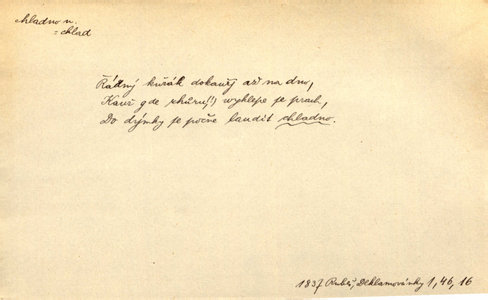 chladno n.
= chlad
Řádný kuřák dokouřj až na dno,
Když gde shůry(!) wyklepe se prach,
Do dýmky se počne laudit chladno.
1837 Rubeš, Deklamovánky 1, 46, 16